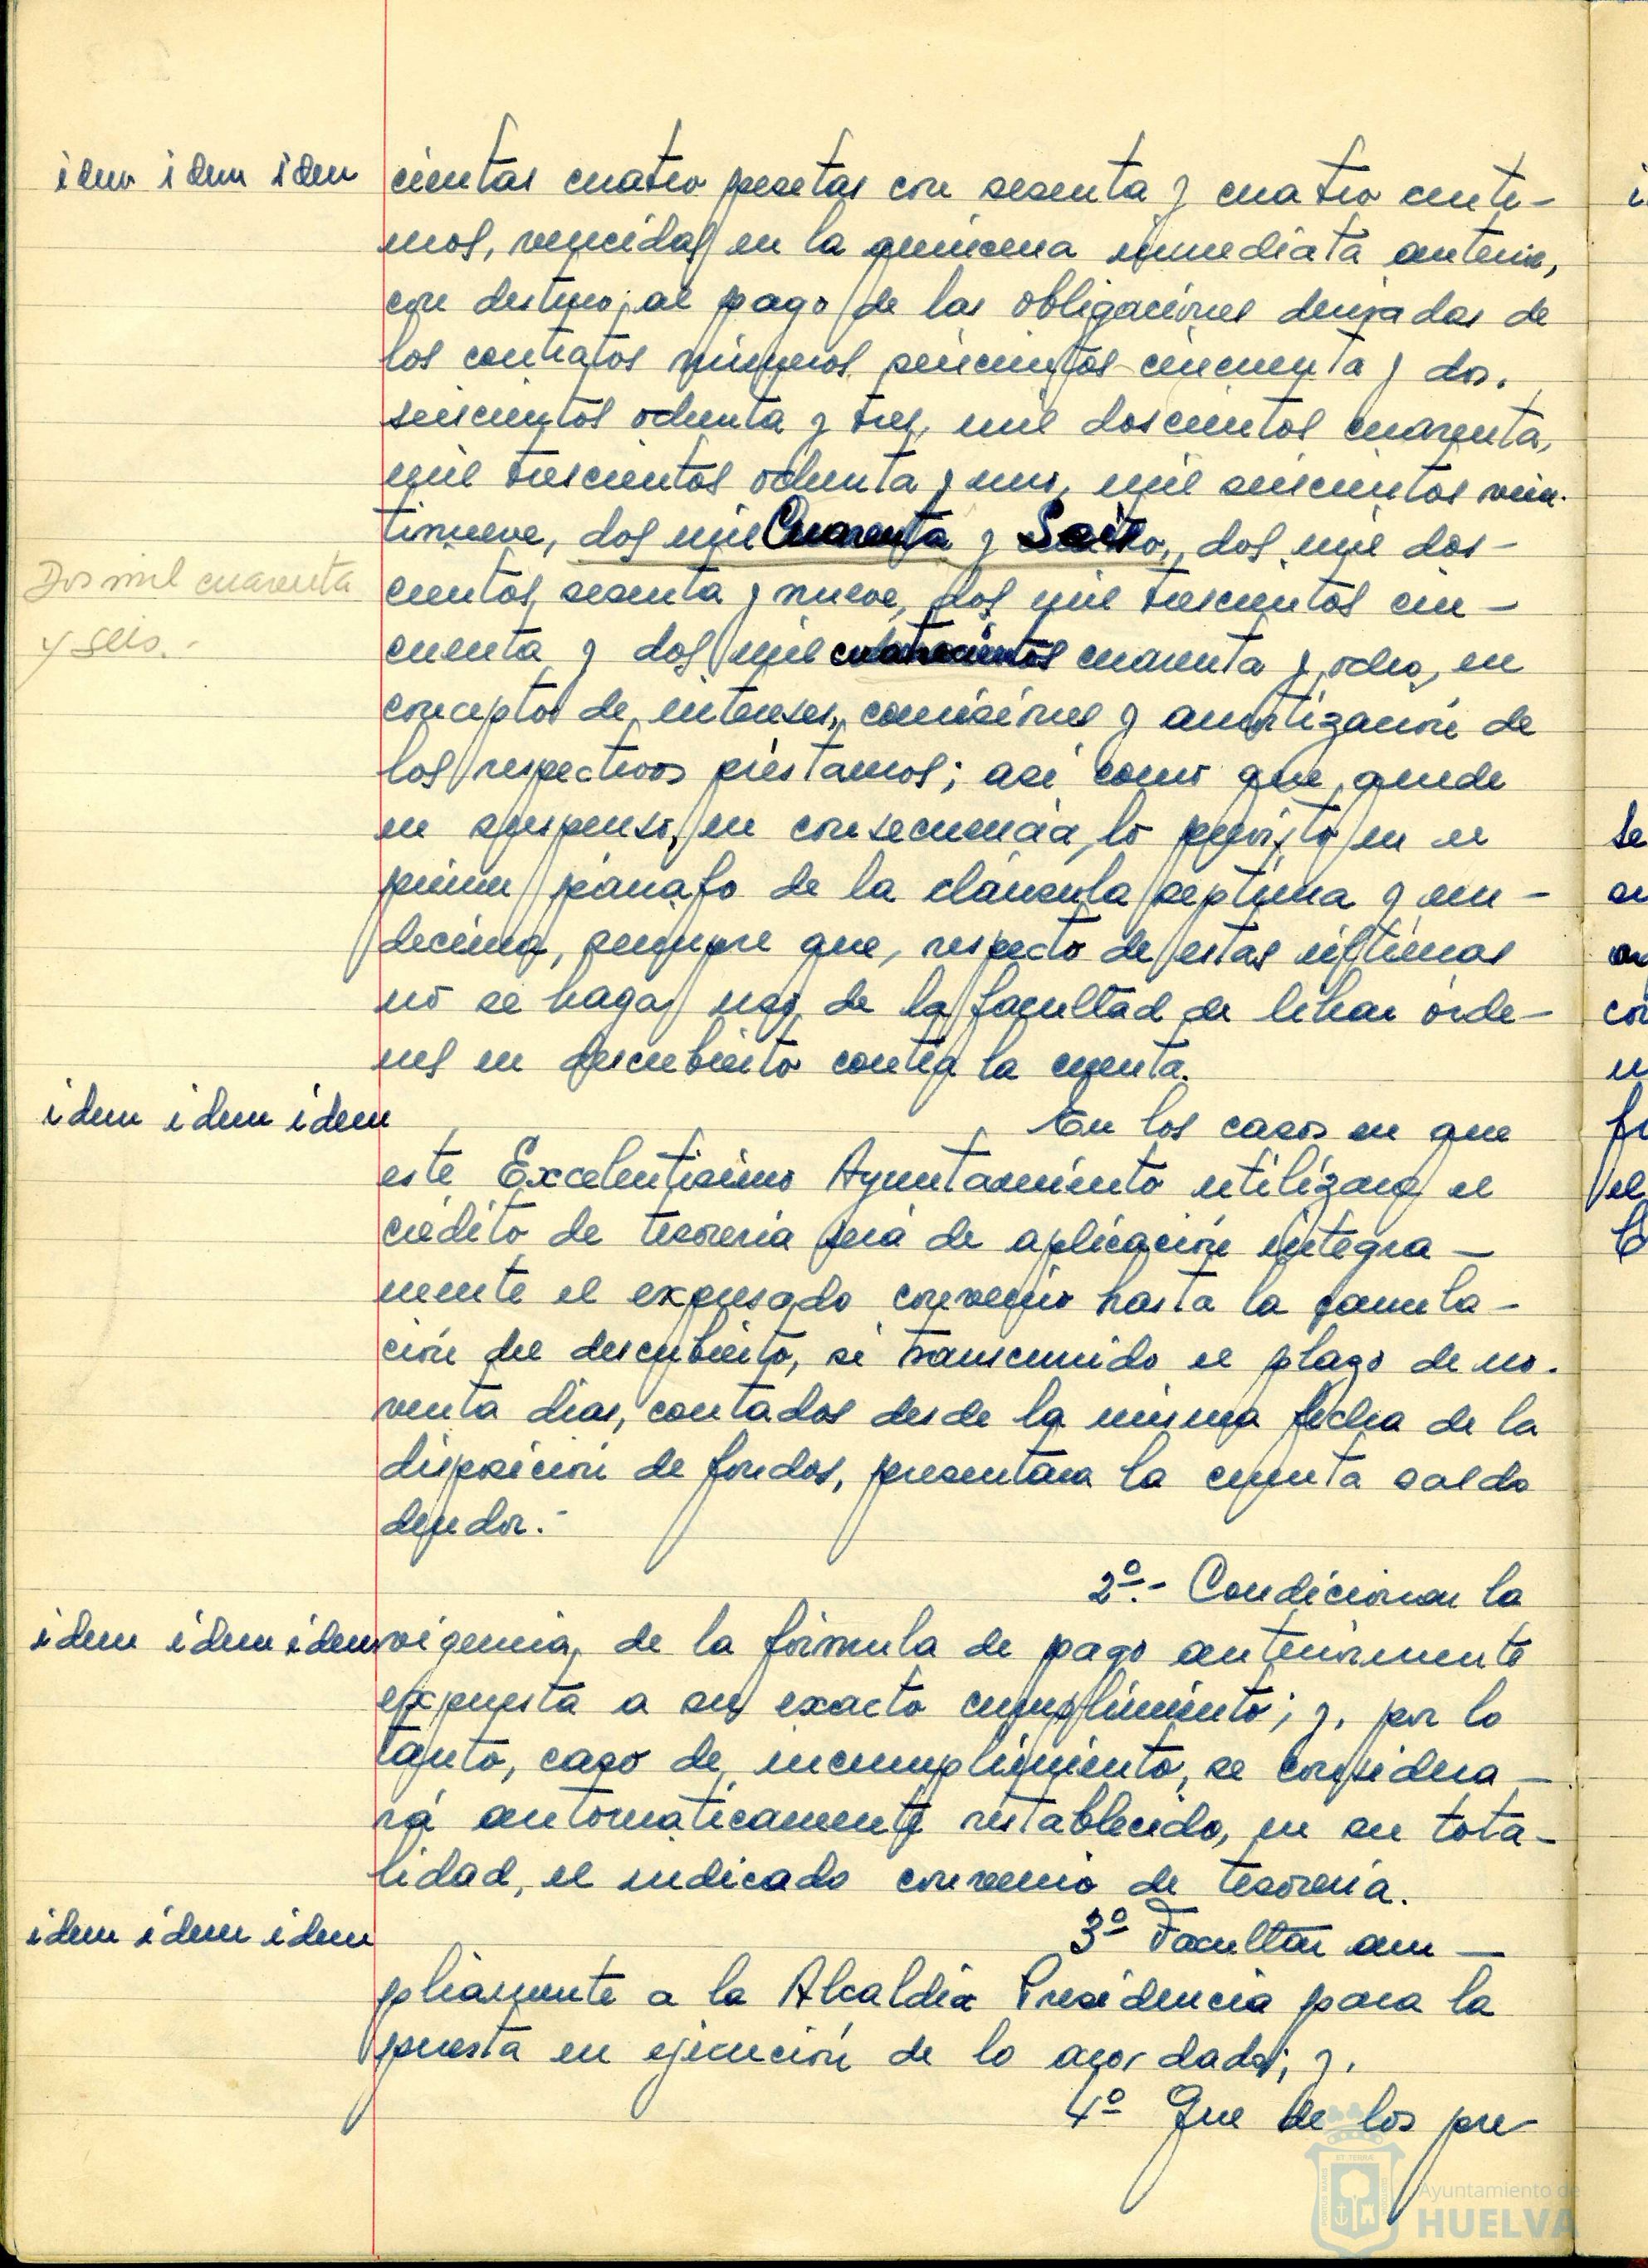 idem idem idem
cientas cuatro pesetas con sesenta y cuatro cénti-
mos, vencidas en la quincena inmediata anterior,
con destino al pago de las obligaciones derivadas de
los contratos números seiscientos cincuenta y dos,
seiscientos ochenta y tres, mil doscientos cuarenta,
mil trescientos ochenta y uno, mil seiscientos vein-
tinueve, dos mil Cuarenta y Seis, dos mil dos-
Dos mil cuarenta
y seis.-
cientos sesenta y nueve, dos mil trescientos cin-
cuenta y dos mil cuatrocientos cuarenta y ocho, en
conceptos de intereses, comisiones y amortización de
los respectivos préstamos; así como que quede
en suspenso, en consecuencia, lo previsto en el
primer párrafo de la cláusula séptima y un-
décima, siempre que, respecto de estas últimas
no se haga uso de la facultad de librar órde-
nes en descubierto contra la cuenta.
idem idem idem
En los casos en que
este Excelentísimo Ayuntamiento utilizara el
crédito de tesorería será de aplicación íntegra-
mente el expresado convenio hasta la cancela-
ción del descubierto, si transcurrido el plazo de no-
venta días, contados desde la misma fecha de la
disposición de fondos, presentara la cuenta saldo
deudor.-
2º.- Condicionar la
idem idem idem
vigencia de la fórmula de pago anteriormente
expuesta a su exacto cumplimiento; y, por lo
tanto, caso de incumplimiento, se considera-
rá automáticamente restablecido, en su tota-
lidad, el indicado convenio de tesorería.
idem idem idem
3º Facultar am-
pliamente a la Alcaldía Presidencia para la
puesta en ejecución de lo acordado; y,
4º Que de los pre-
Ayuntamiento de
HUELVA